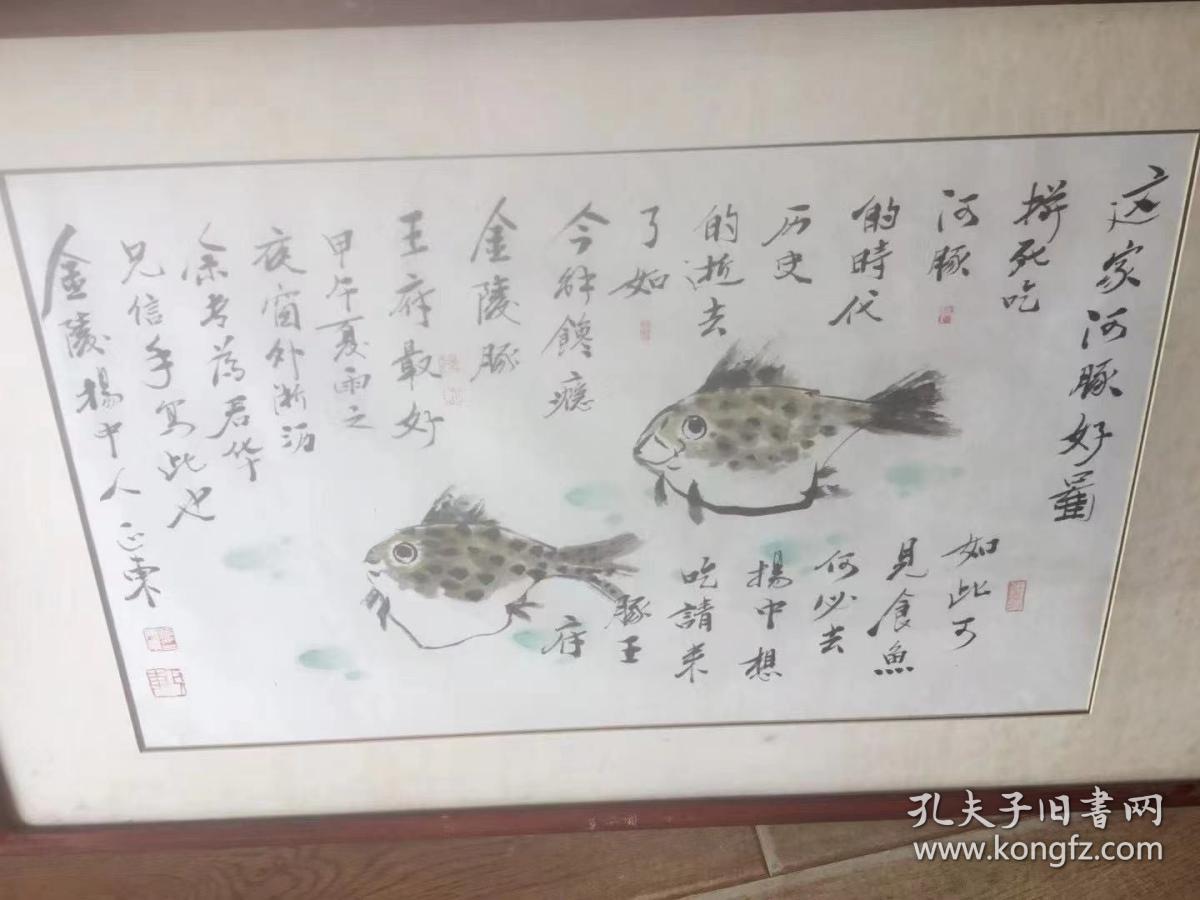 这家河豚好罣
拼死吃
河豚
的時代
历史
的逝去
了如
今解饞癮
金陵豚
王府最好
甲午夏雨之
夜窗外淅沥
余为君华
兄信手写此也
金陵揚中人正東
如此可
見食魚
何必去
揚中想
吃請来
豚王
府
孔夫子旧书网
www.kongfz.com